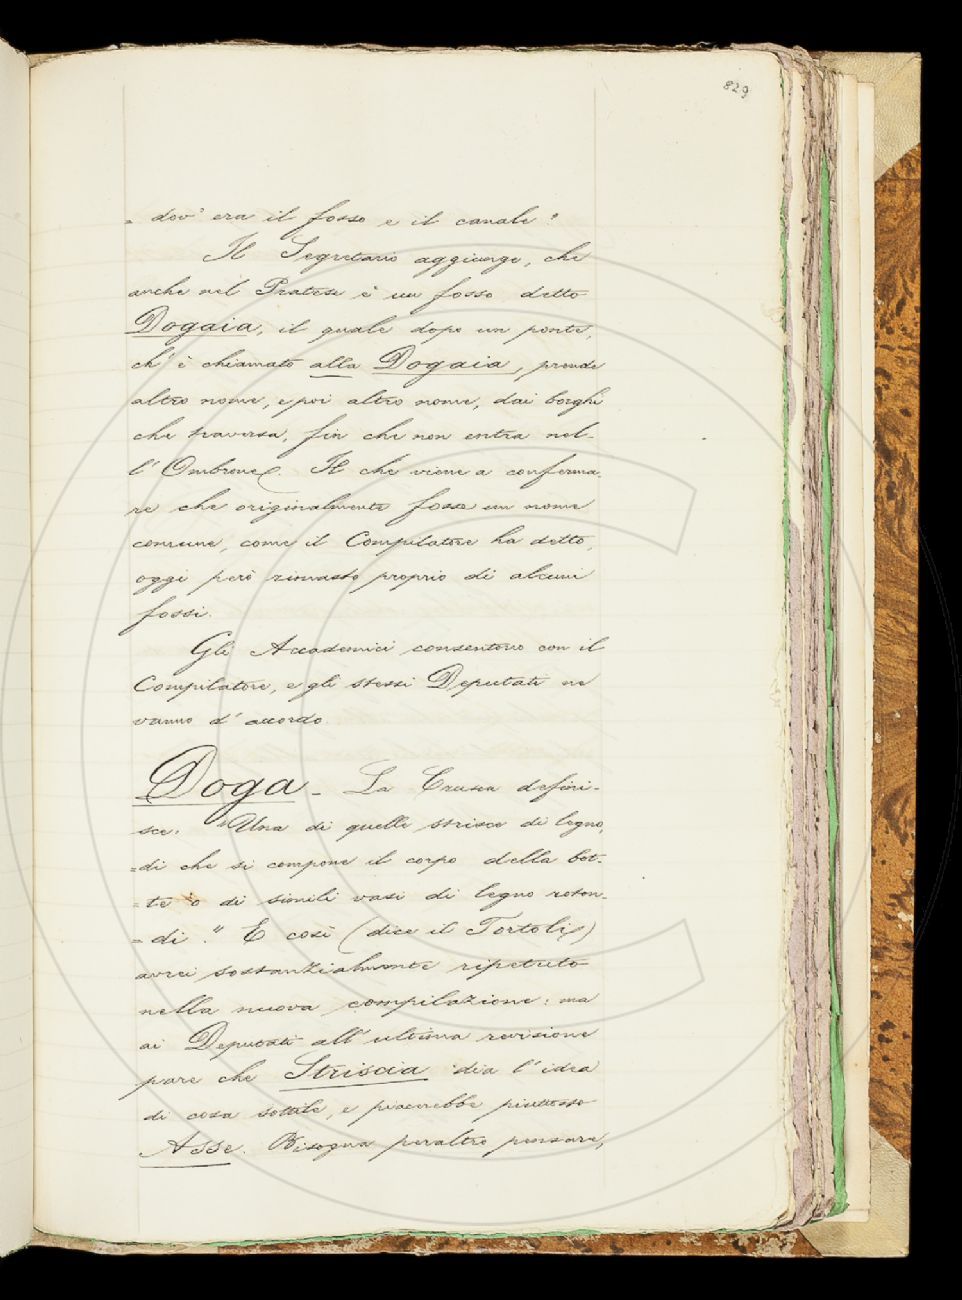 829
= dov' era il fosso e il canale?
Il Segretario aggiunge, che
anche nel Pratese è un fosso detto
Dogaia, il quale dopo un ponte,
ch' è chiamato alla Dogaia, prende
altro nome, e poi altro nome, dai borghi
che traversa, fin che non entra nel-
l' Ombrone. Il che viene a conferma-
re che originalmente fosse un nome
comune, come il Compilatore ha detto,
oggi però rimasto proprio di alcuni
fossi.
Gli Accademici consentono con il
Compilatore, e gli stessi Deputati ne
vanno d' accordo.
Doga - La Crusca defini-
sce. "Una di quelle strisce di legno,
= di che si compone il corpo della bot-
= te o di simili vasi di legno roton-
= di." E così (dice il Tortoli)
avrei sostanzialmente ripetuto
nella nuova compilazione: ma
ai Deputati all' ultima revisione
pare che Striscia dia l' idea
di cosa sottile, e piacerebbe piuttosto
Asse. Bisogna peraltro pensare,